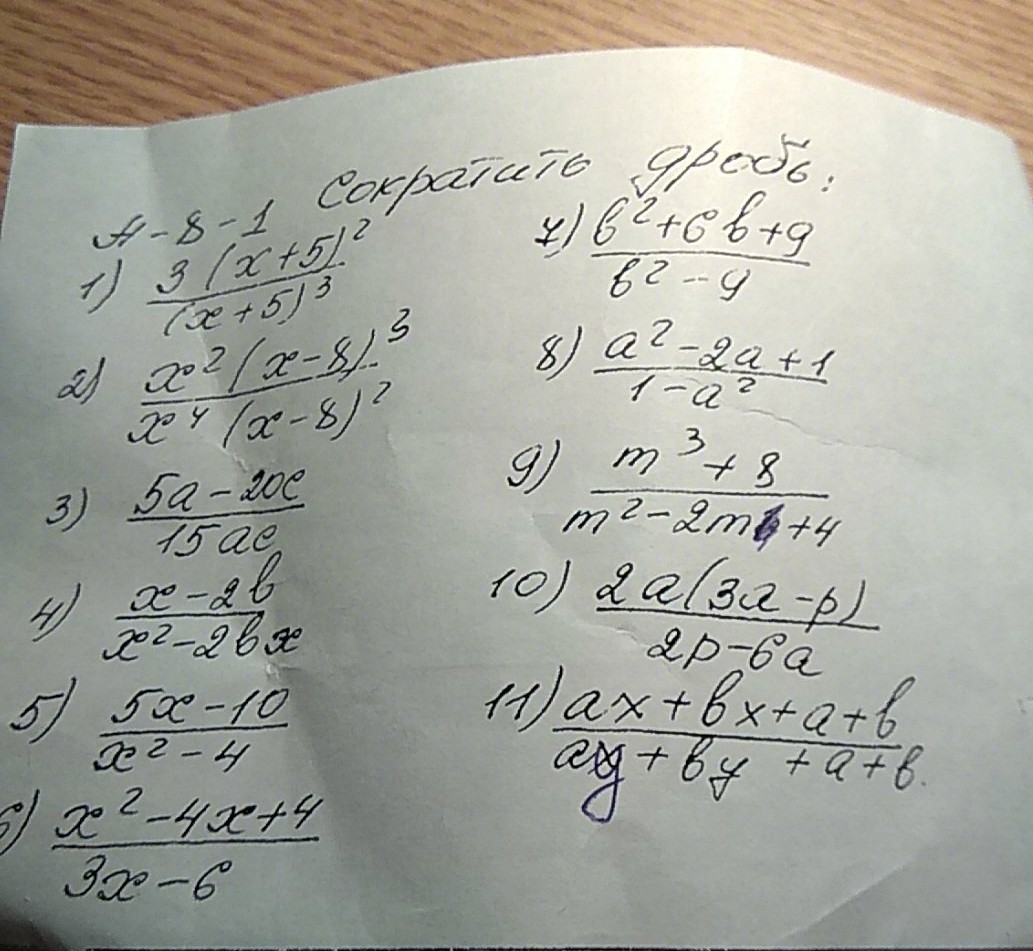 Сократить дробь:
А-8-1
1) 3(x+5)²
(x+5)³
2) x²(x-8)³
x⁴(x-8)²
3) 5a-20c
15ac
4) x-2b
x²-2bx
5) 5x-10
x²-4
6) x²-4x+4
3x-6
7) b²+6b+9
b²-9
8) a²-2a+1
1-a²
9) m³+8
m²-2m+4
10) 2a(3a-p)
2p-6a
11) ax+bx+a+b
ay+by+a+b.